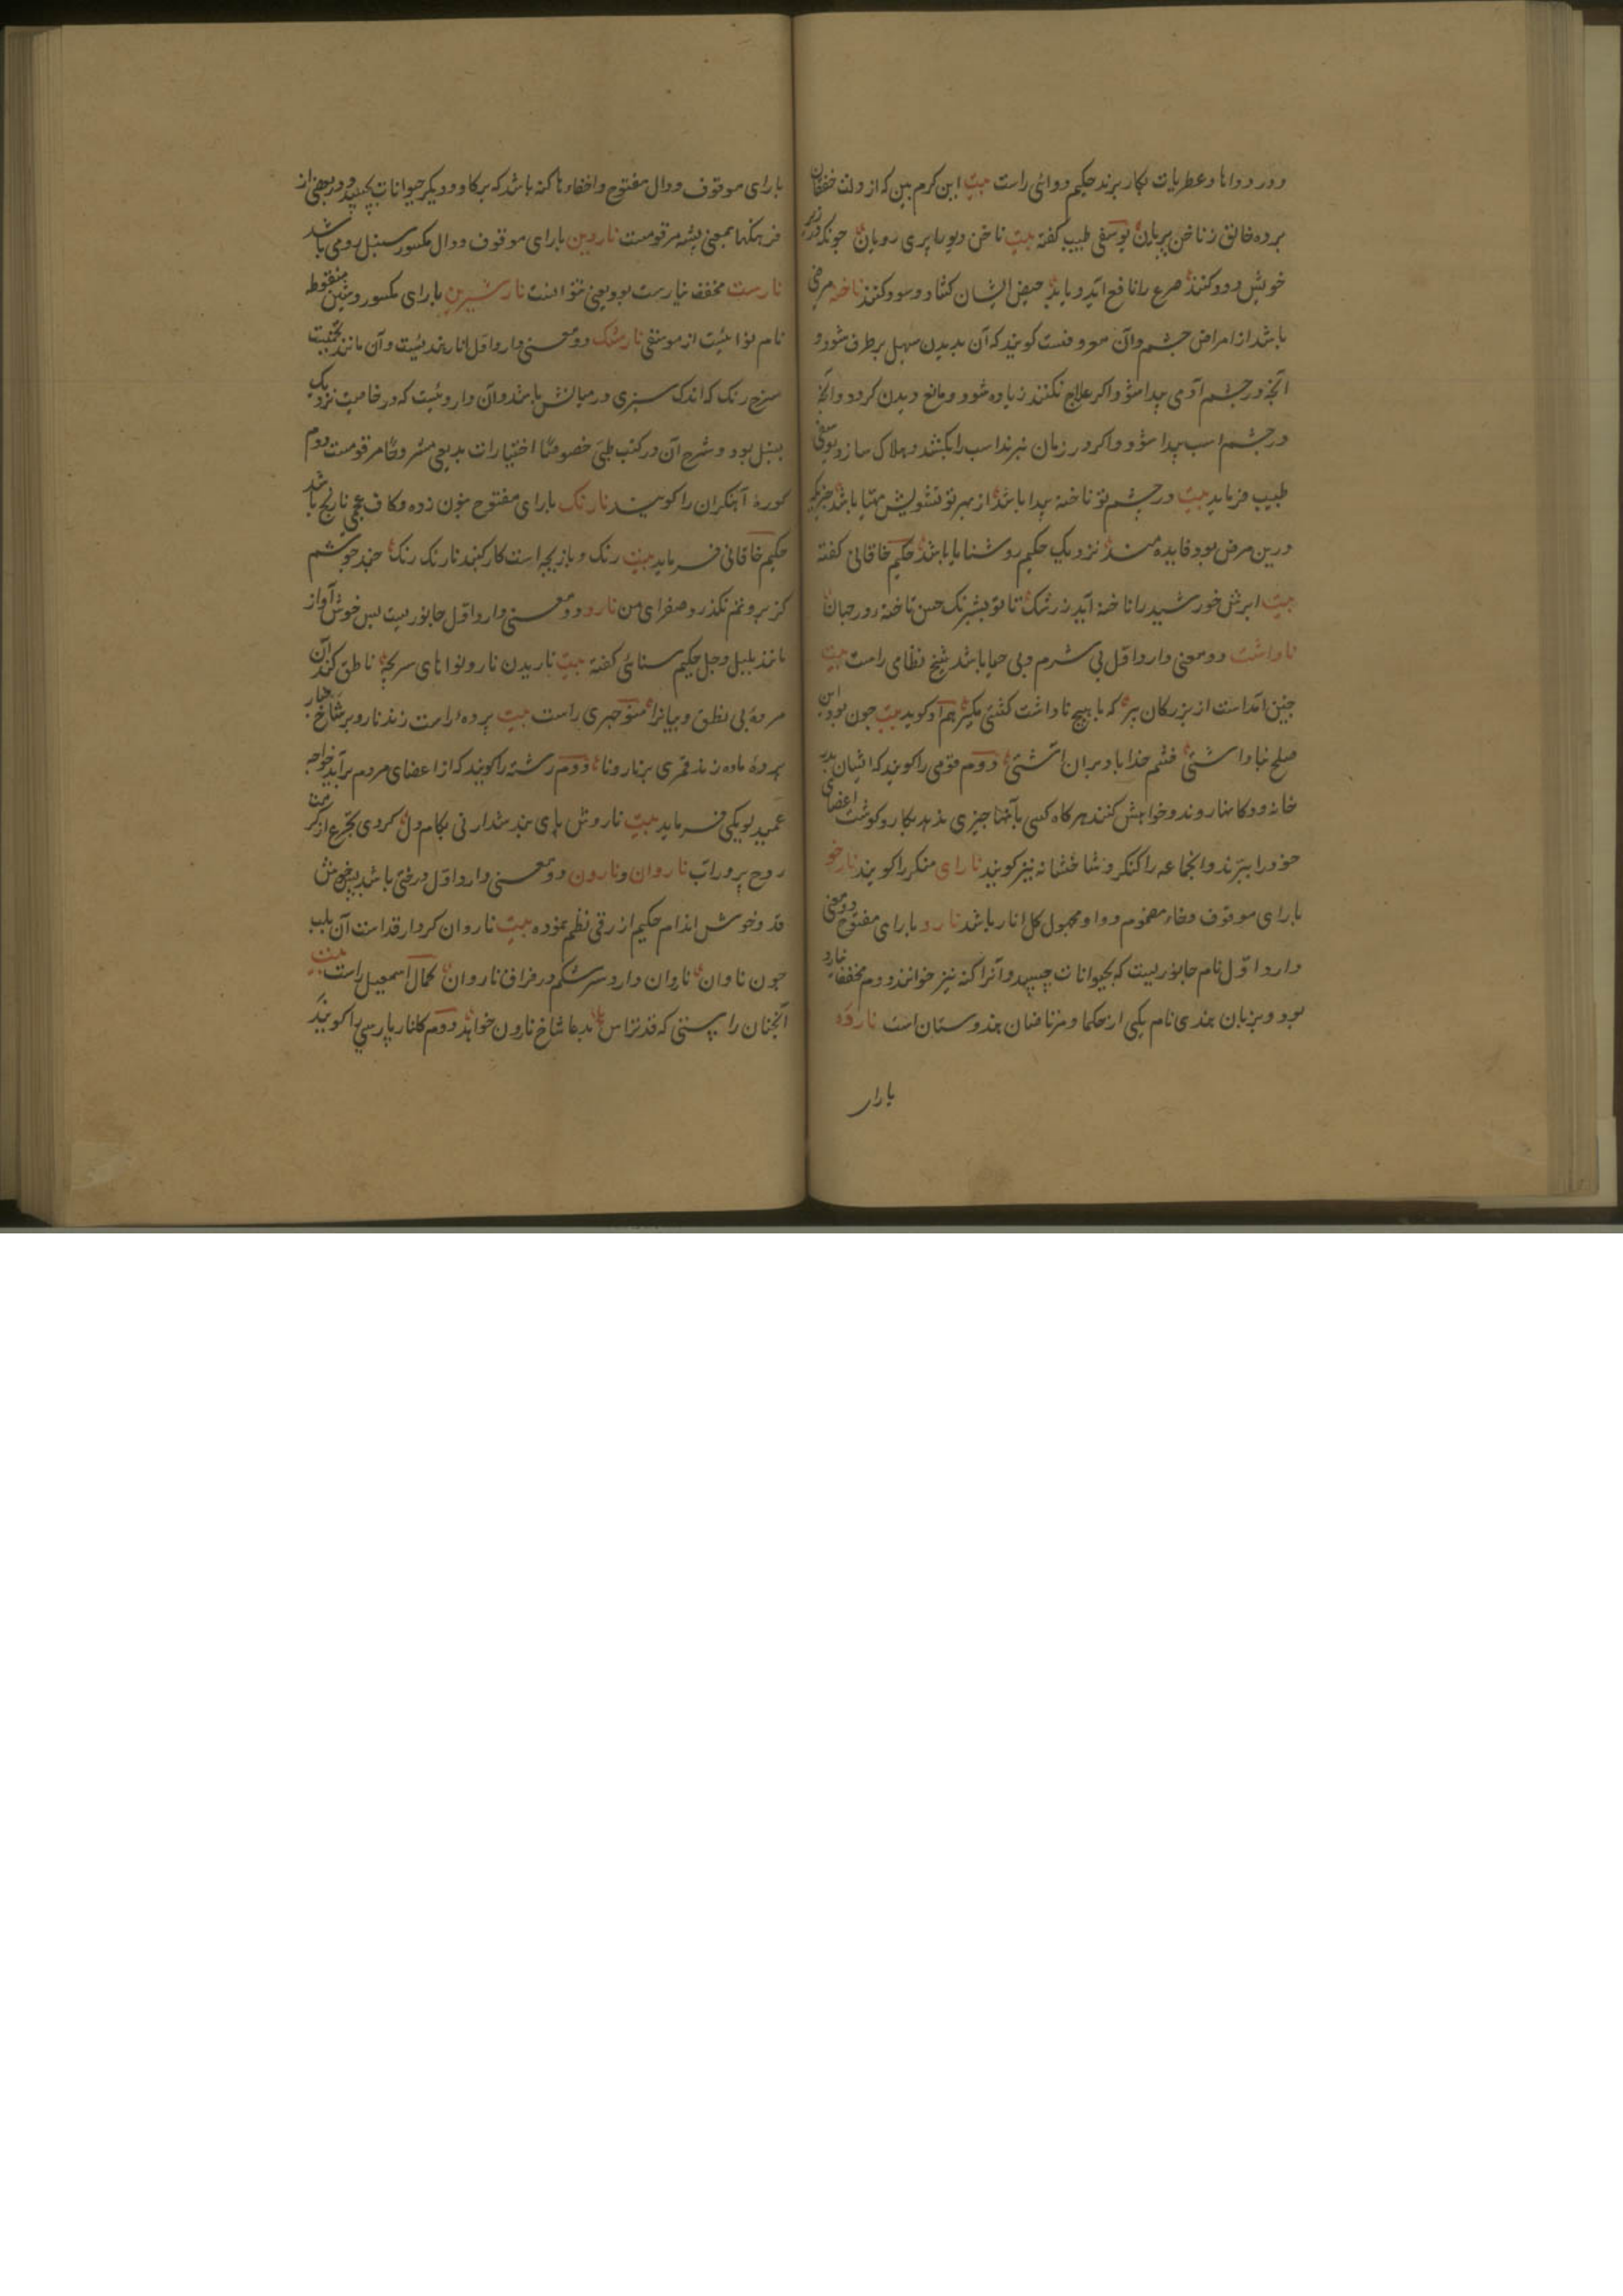 و در دواها و عطریات بکار برند حکیم دوائی راست بیت این کرم بین که از دلت خفقان
برده خالق ز ناخن پریان یوسفی طبیب کفته بیت ناخن دیو را پری رویان چونکه در زیر
خویش دود کنند صرع را نافع آید و باید حیض ایشان کشاد و سود کنند ناخنه مرضی
باشد از امراض چشم و آن معروفست کویند که آن بدیدن سهیل برطرف شود و
آنچه در چشم آدمی پیدا شود اکر علاج نکنند زیاده شود و مانع دیدن کردد و آنچه
در چشم اسب پیدا شود و اکر در زمان نبرند اسب را بکشد و هلاک سازد یوسفی
طبیب فرماید بیت در چشم تو ناخنه پیدا باشد از بهر تو تشویش مهیا باشد چیزیکه
درین مرض بود فایده مند نزدیک حکیم روشنایا باشد حکیم خاقانی کفته
بیت ابرش خورشید را ناخنه آید ز رشک تا تو بشبرنک حسن تاخته در جهان
ناداشت دو معنی دارد اول بی شرم و بی حیا باشد شیخ نظامی راست بیت
چنین آمداست از بزرکان پیر که با هیچ ناداشت کشتی مکیر هم او کوید بیت چون بود این
صلح بناداشتی خشم خدا باد بران آشتی دوم قومی را کویند که ایشان بدر
خانه و دکانها روند و خواهش کنند هرکاه کسی بآنها چیزی ندهد بکارد کوشت اعضای
خود را ببرند و انجماعه را کنکر و شاخشانه نیز کویند نارای منکر را کویند نارخو
بارای موقوف و خاء مضموم و واو مجهول کل انار باشد نارد بارای مفتوح دو معنی
دارد اول نام جانوریست که بحیوانات چسپد و آنرا کنه نیز خوانند دوم مخفف نیارد
بود و بزبان هندی نام یکی از حکما و مرتاضان هندوستان است نارده
بارای
بارای موقوف و دال مفتوح و اخفاء ها کنه باشد که بر کاو و دیکر حیوانات بچسپد و در بعضی از
فرهنکها بمعنی پشه مرقومست ناردین بارای موقوف و دال مکسور سنبل رومی باشد
نارست مخفف نیارست بود یعنی نتوانست نارشیرین بارای مکسور و شین منقوطه
نام نوائیست از موسیقی نارمشک دو معنی دارد اول انار هندیست و آن مانند
سرخ رنک که اندک سبزی در میانش باشد و آن داروئیست که در خاصیت نزدیک
بسنبل بود و شرح آن در کتب طبی خصوصًا اختیارات بدیعی مشروحًا مرقومست دوم
کورهٔ آهنکران را کویند نارنک بارای مفتوح بنون زده و کاف عجمی نارنج باشد
حکیم خاقانی فرماید بیت رنک و بازیچه است کار کنبد نارنک رنک چند جوشم
کز بروتم نکذرد صفرای من نارو دو معنی دارد اول جانوریست بس خوش آواز
مانند بلبل و جل حکیم سنائی کفته بیت ناریدن نارو نواهای سریجه ناطق کند آن
مردهٔ بی نطق و بیانرا منوچهری راست بیت پرده راست زند نارو بر شاخ چنار
پردهٔ باده زند قمری بر نارونا دوم رشته را کویند که از اعضای مردم برآید خواجه
عمید لویکی فرماید بیت ناروش پای بند شدار نی بکام دل کردی تجرع از
روح پرور آب ناروان و نارون دو معنی دارد اول درختی باشد خوش
قد و خوش اندام حکیم ازرقی نظم نموده بیت ناروان کردار قداست آن بلب
چون ناروان ناروان دارد سرشکم در فراق ناروان کمال اسمعیل راست بیت
آنچنان راستی که قد تراست بدعا شاخ نارون خواهد دوم کلنار پارسی را کویند